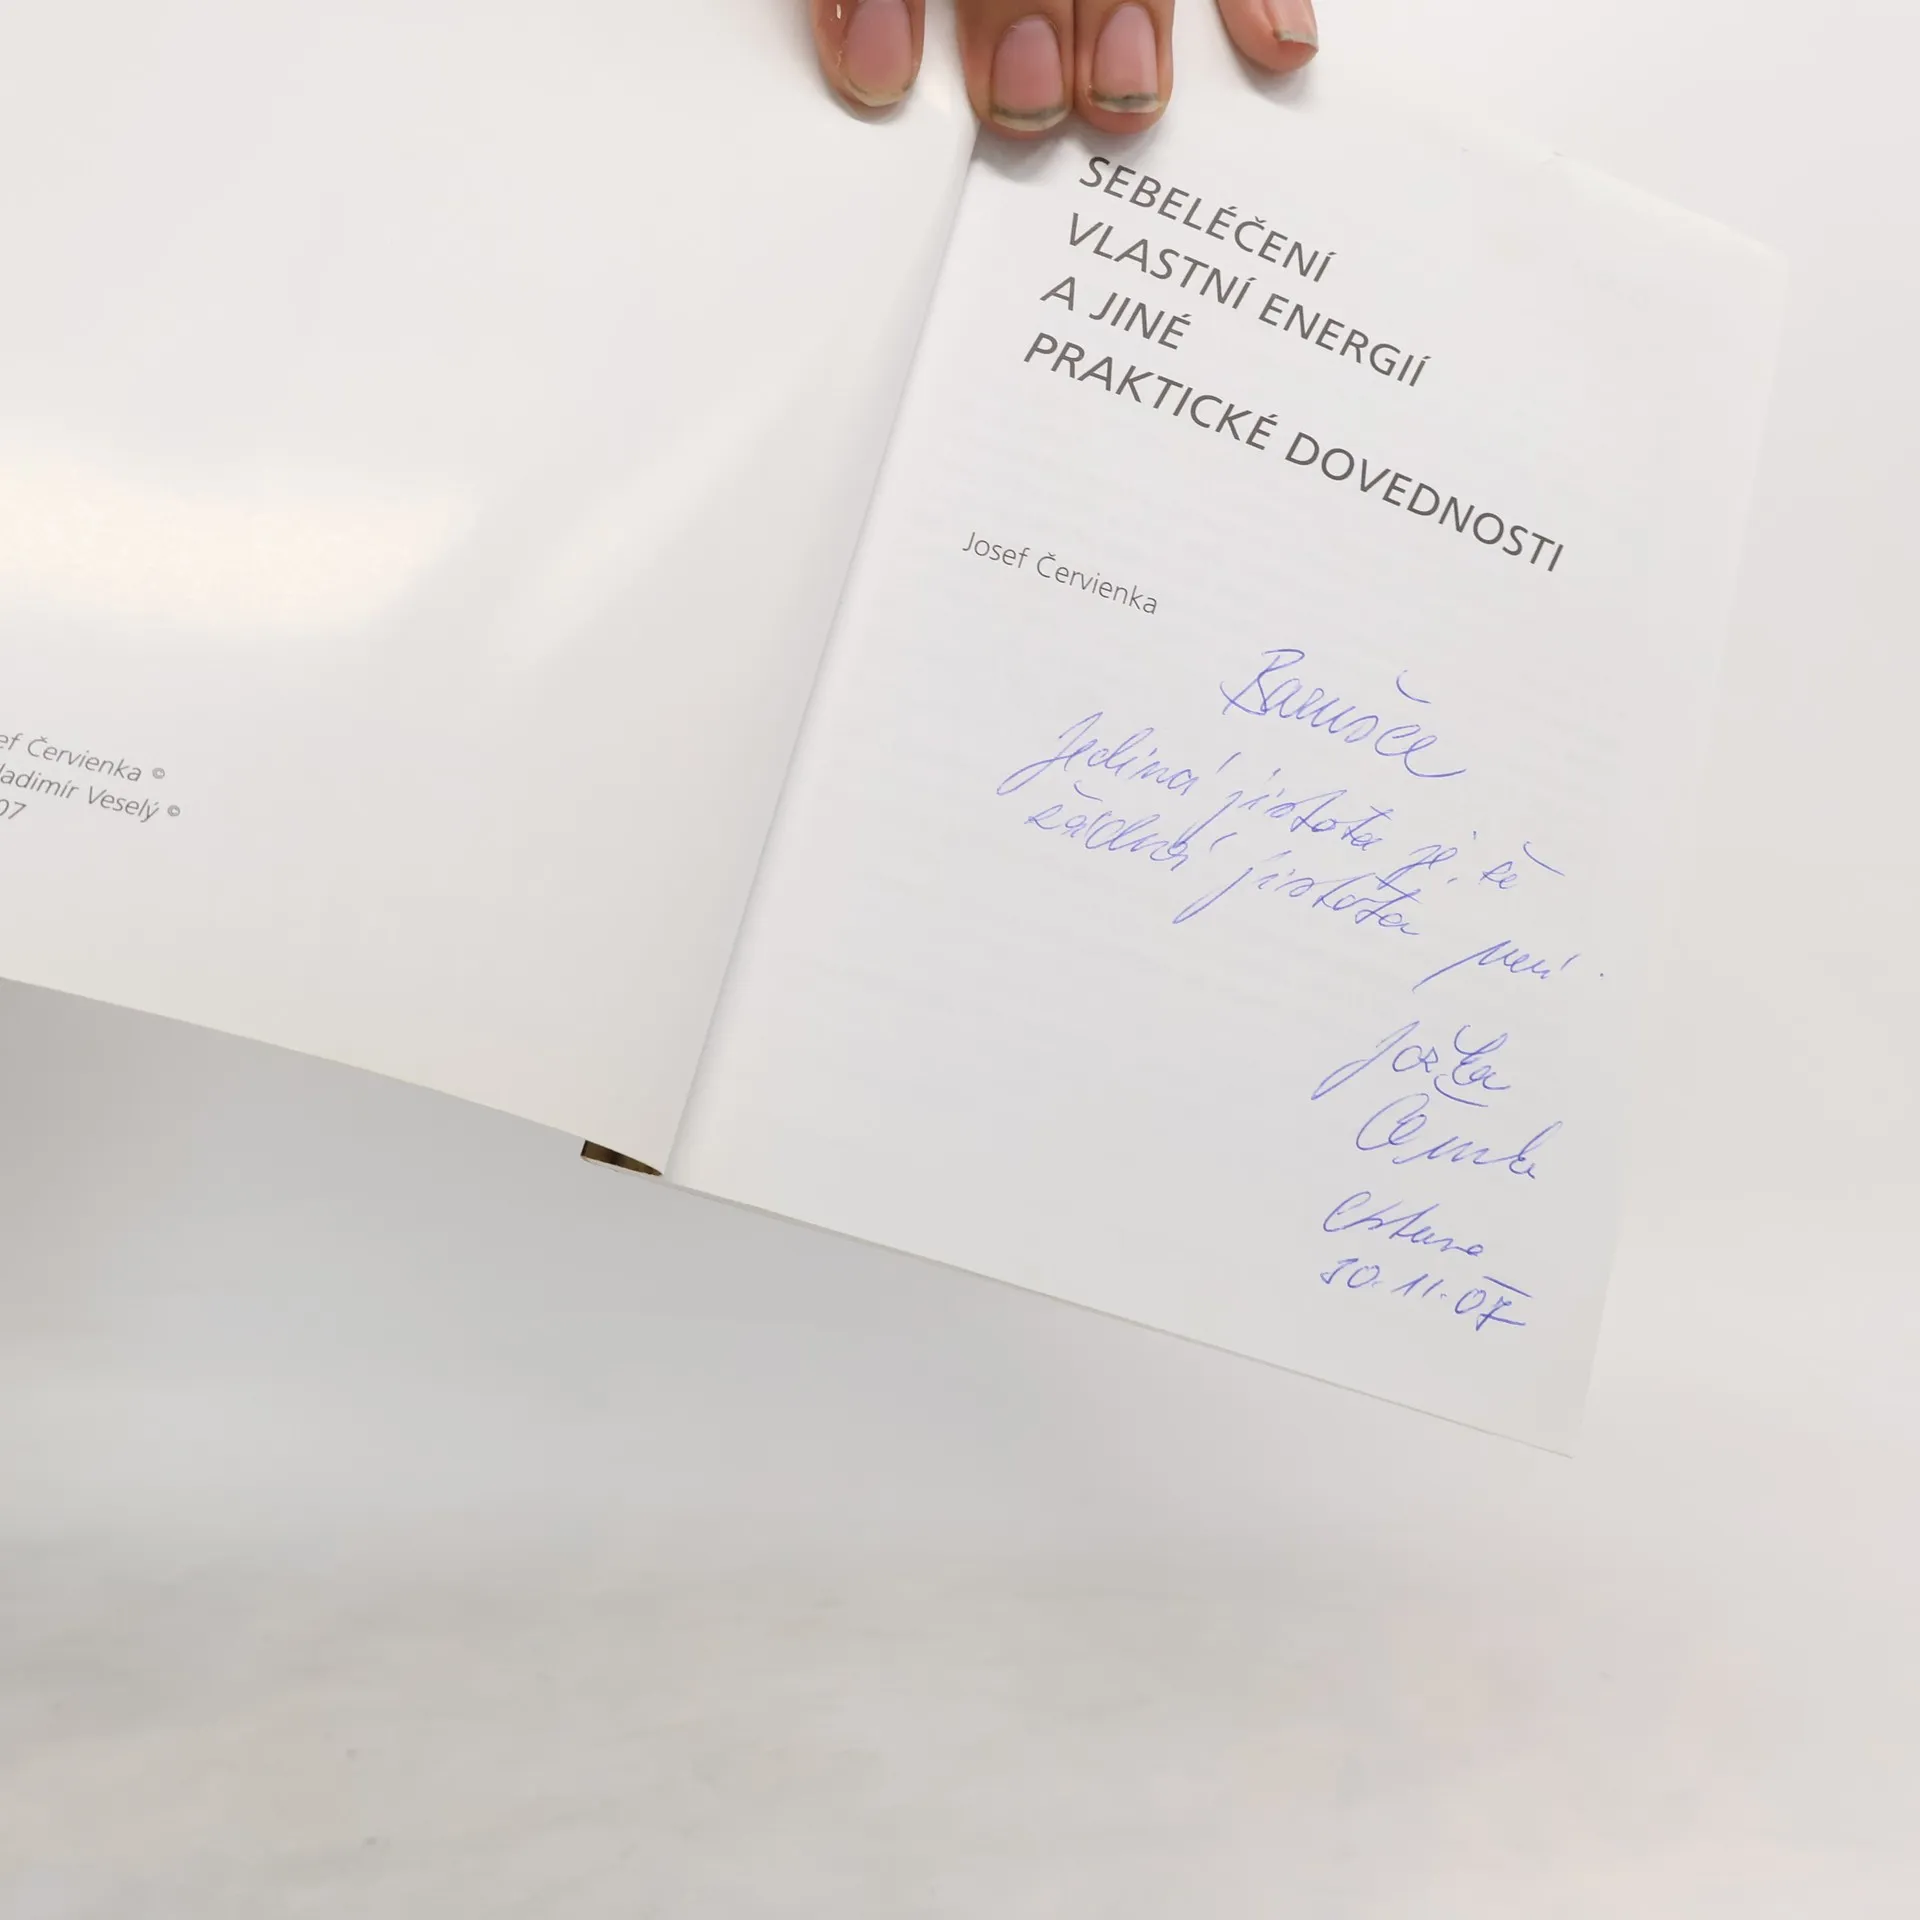 ef Červienka ©
ladimír Veselý ©
07
SEBELÉČENÍ
VLASTNÍ ENERGIÍ
A JINÉ
PRAKTICKÉ DOVEDNOSTI
Josef Červienka
Jediná jistota je, že
žádná jistota není.
Jožka
10.11.07